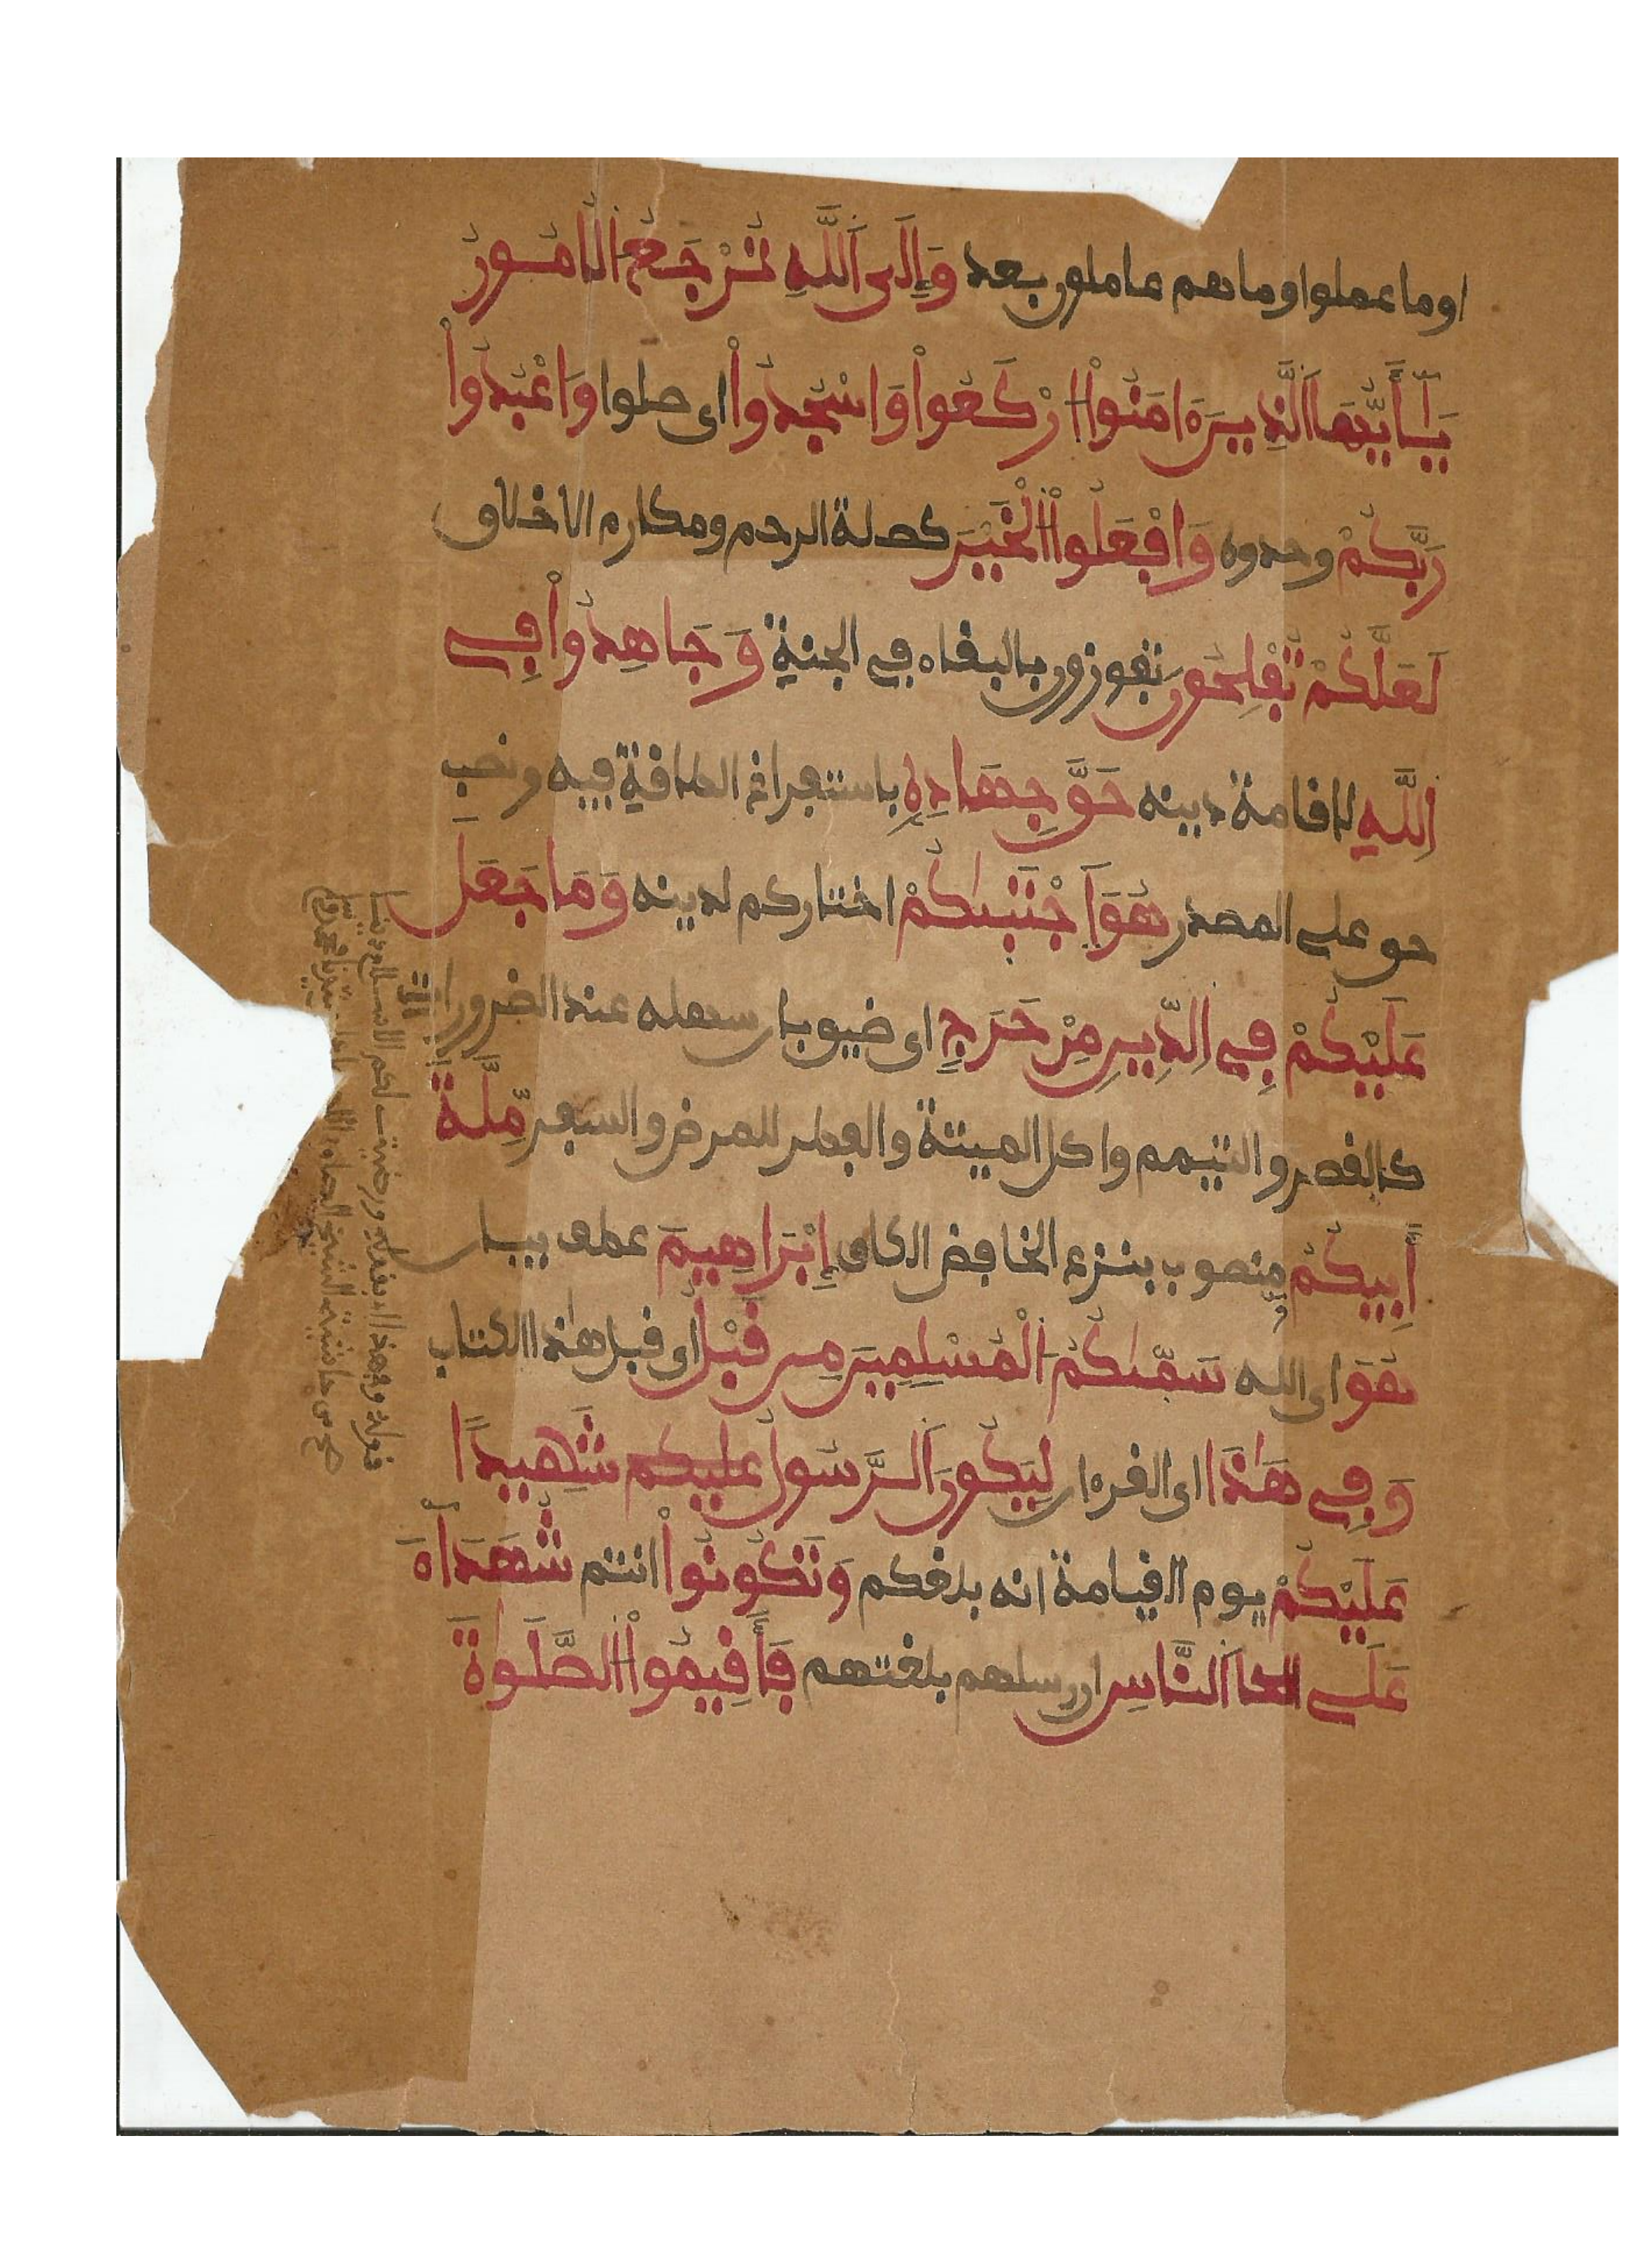 او ما عملوا وما هم عاملون بعد وَإِلَى اَللَّهِ تُرْجَعُ اَلُامُورُ
يَٰأَيُّهَا اَلَّذِينَ ءَامَنُواْ اُرْكَعُواْ وَاسْجُدُواْ اى صلوا وَاعْبُدُواْ
رَبَّكُمْ وحدوه وَافْعَلُواْ اُلْخَيْرَ كصلة الرحم ومكارم الاخلاق
لَعَلَّكُمْ تُفْلِحُونَ تفوزون بالبقاء في الجنة وَجَاهِدُواْ فِي
اِللَّهِ لاقامة دينه حَقَّ جِهَادِهِ باستفراغ الطاقة فيه ونصب
حق على المصدر هُوَ اَجْتَبَىٰكُمْ اختاركم لدينه وَمَا جَعَلَ
عَلَيْكُمْ فِي اِلدِّينِ مِنْ حَرَجٍ اى ضيق بان سهله عند الضرورات
كالقصر والتيمم واكل الميتة والفطر للمرض والسفر مِّلَّةَ
أَبِيكُمْ منصوب بنزع الخافض الكاف إِبْرَاهِيمَ عطف بيان
هُوَ اى الله سَمَّىٰكُمُ اَلْمُسْلِمِينَ مِن قَبْلُ اى قبل هذا الكتاب
وَفِي هَٰذَا اى القرءان لِيَكُونَ اَلرَّسُولُ عليكم شَهِيدًا
عَلَيْكُمْ يوم القيامة انه بلغكم وَتَكُونُواْ انتم شُهَدَآءَ
عَلَى اَلنَّاسِ ان رسلهم بلغتهم فَأَقِيمُواْ اُلصَّلَوٰةَ
قوله وبهذا الفعل ورضيت لكم الاسلام دينا
من حاشية الشيخ الصاوى